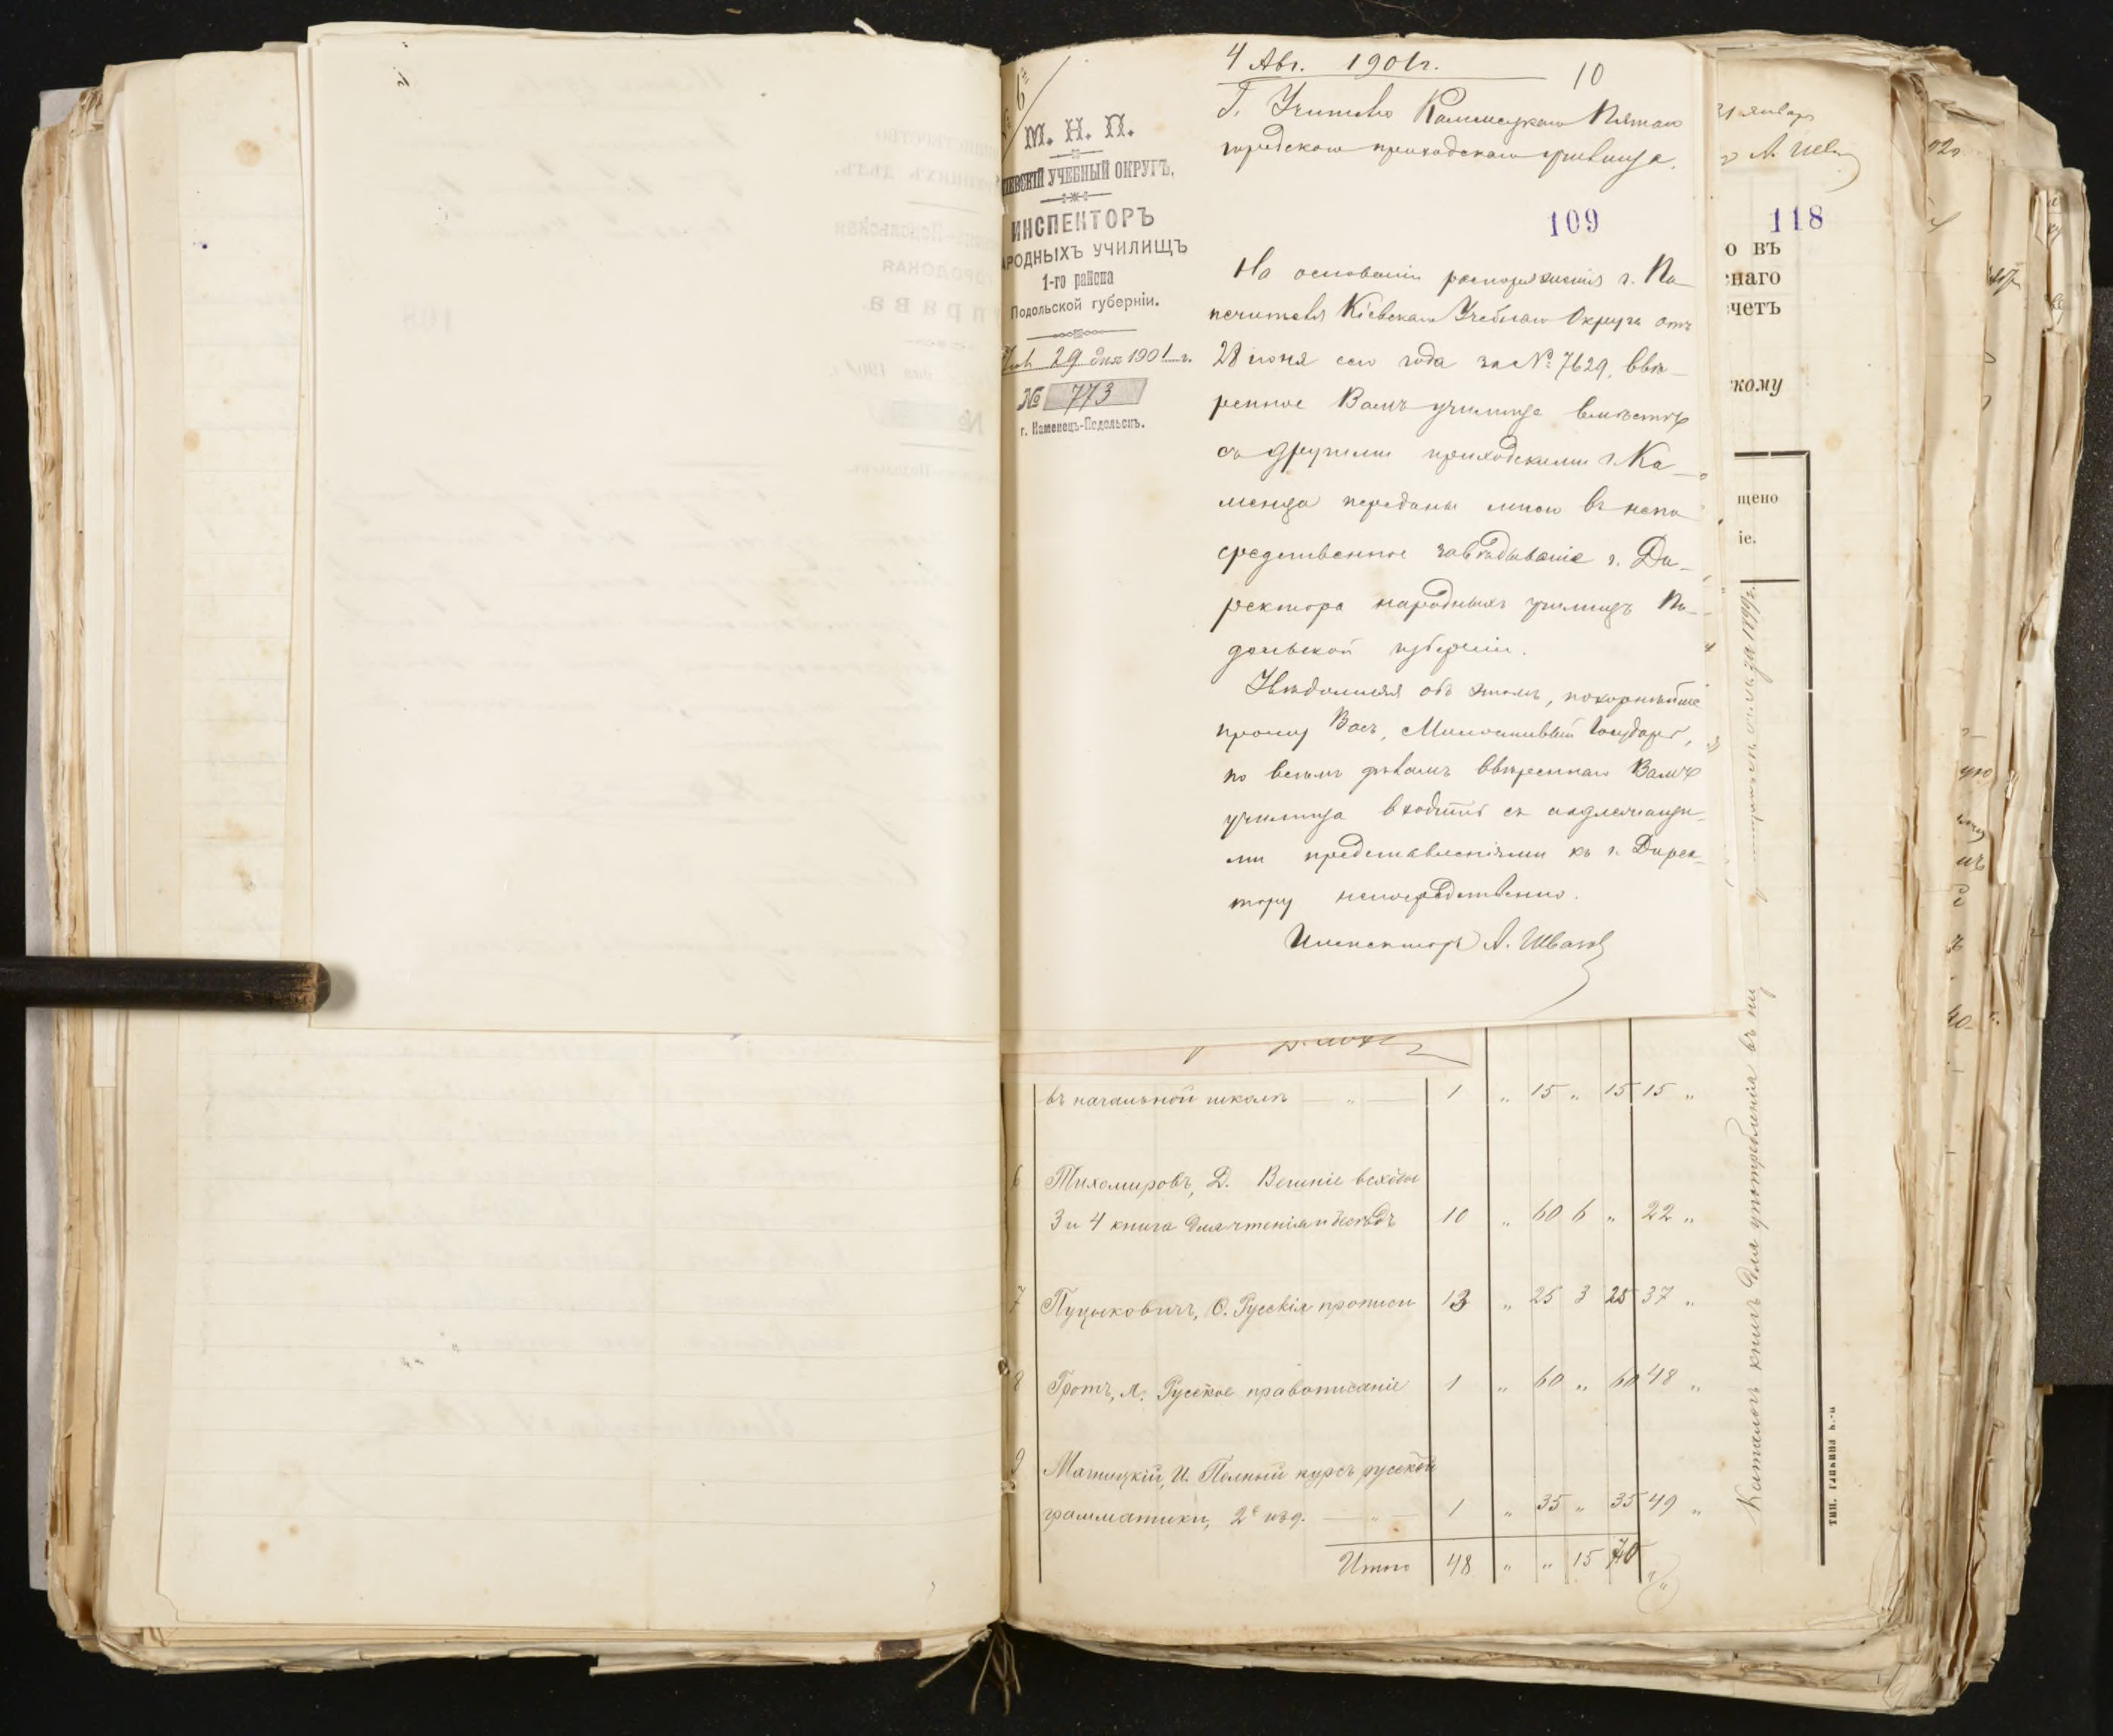 4 Авг. 1901 г.
10
Г. Учителю Каменецкаго Пятаго
городского приходскаго училища.
М. Н. П.
КІЕВСКІЙ УЧЕБНЫЙ ОКРУГЪ.
ИНСПЕКТОРЪ
НАРОДНЫХЪ УЧИЛИЩЪ
1-го района
Подольской губерніи.
29 дня 1901 г.
№ 773
г. Каменецъ-Подольскъ.
109
На основаніи распоряженія г. По-
печителя Кіевскаго Учебнаго Округа отъ
28 іюня сего года за № 7629, ввѣ-
ренное Вамъ училище вмѣстѣ
съ другими приходскими г. Ка-
менца переданы мною въ непо
средственное завѣдываніе г. Ди-
ректора народныхъ училищъ По-
дольской губерніи.
Увѣдомляя объ этомъ, покорнѣйше
прошу Васъ, Милостивый Государь,
по всѣмъ дѣламъ ввѣреннаго Вамъ
училища входить съ надлежащи-
ми представленіями къ г. Дирек-
тору непосредственно.
Инспекторъ А.
31 январ
118
о въ
наго
четъ
кому
щено
іе.
за 1899 г.
Каталогъ книгъ для употребленія въ
въ начальной школѣ — „ — 1 „ 15 „ 15 15 „
6 Тихомировъ, Д. Вешніе всходы
3 и 4 книга для чтенія и бесѣдъ 10 „ 60 6 „ 22 „
7 Пуцыковичъ, Ѳ. Русскія прописи 13 „ 25 3 25 37 „
8 Гротъ, Я. Русское правописаніе 1 „ 60 „ 60 48 „
9 Магницкій, И. Полный курсъ русской
грамматики, 2е изд. — „ — 1 „ 35 „ 35 49 „
Итого 48 „ „ 15 70